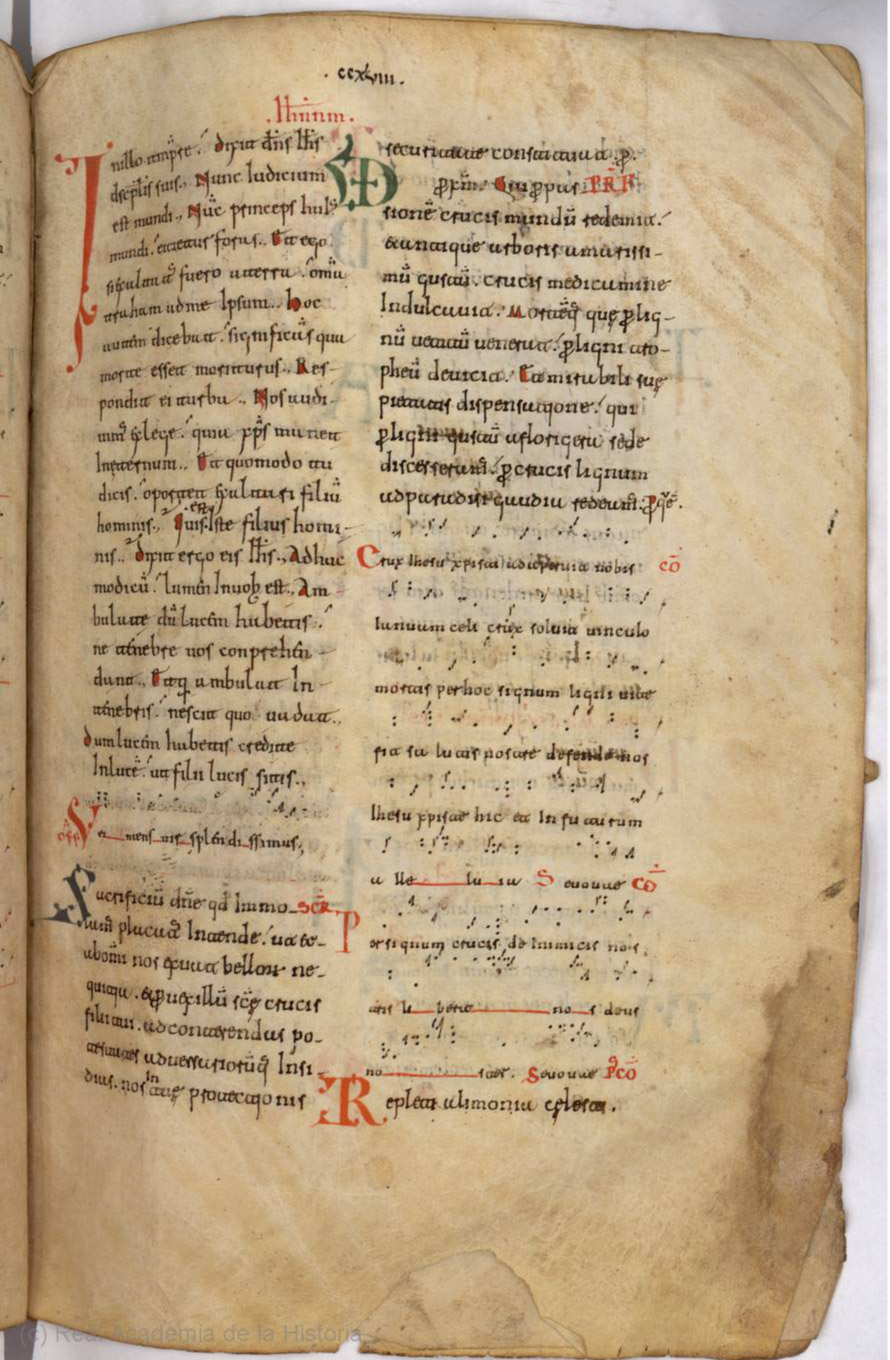 · ccxlviii ·
.Iħmnm.
In illo tempr̃e. dixit dñs iħs
discplis suis., Nunc iudicium
est mundi., Nũc princeps huiꝰ
mundi. eicietur foras.. Et ego
si exaltatꝰ fuero a terra. omĩa
traham ad me ipsum.. Hoc
autem dicebat. significãs qua
morte esset moriturus.. Res-
pondit ei turba., Nos audi-
uimꝰ ex lege. quia xp̃s manet
in eternum., Et quomodo tu
dicis. oportet exaltari filiũ
hominis., Quis est iste filius homi-
nis., Dixit ergo eis iħs., Adhuc
modicũ. lumen in uob̃ est., Am
bulate dũ lucem habetis.
ne tenebre uos conprehen-
dant., Et qi ambulat in
tenebris. nescit quo uadat..
dum lucem habetis credite
in lucẽ. ut filii lucis sitis.,
OFF Ve mens nis splendissimus,
Sacrificiũ dñe qd̃ immo- SCR̃
lamꝰ placatꝰ intende. ut ab
ab omi nos exuat bellorum ne-
quitia. & p uexillũ sc̃e crucis
filii tui. ad conterendas po-
testates aduersariorũq insi-
dias. nos in tue protectionis
securitate constituat. p̃.
p xpm̃. Qui p pas PRF
sionẽ crucis mundũ redemit.
& antique arboris amarissi-
mũ gustũ. crucis medicamine
indulcauit. Mortẽq̃ que p lig-
nũ uetitũ uenerat. p ligni tro-
pheũ deuicit. Ta mirabili sue
pietatis dispensatione. qui
p ligni gustũ a florigera sede
discesseramꝰ. p crucis lignum
ad paradisi gaudia redeamꝰ. P q̃ẽ.
Crux ihesu xpisti ad aperuit nobis CÕ
ianuam celi crux soluit uinculo
mortis per hoc signum ligni uite
fta su lucis portare defende nos
ihesu xpiste hic et in futurum
a lle lu ia S euouae CÕ
Per signum crucis de inimicis nos
tris li bera no s deus
no ster. Seuouae PCÕ
Repleat alimonia celestis.
(c) Real Academia de la Historia